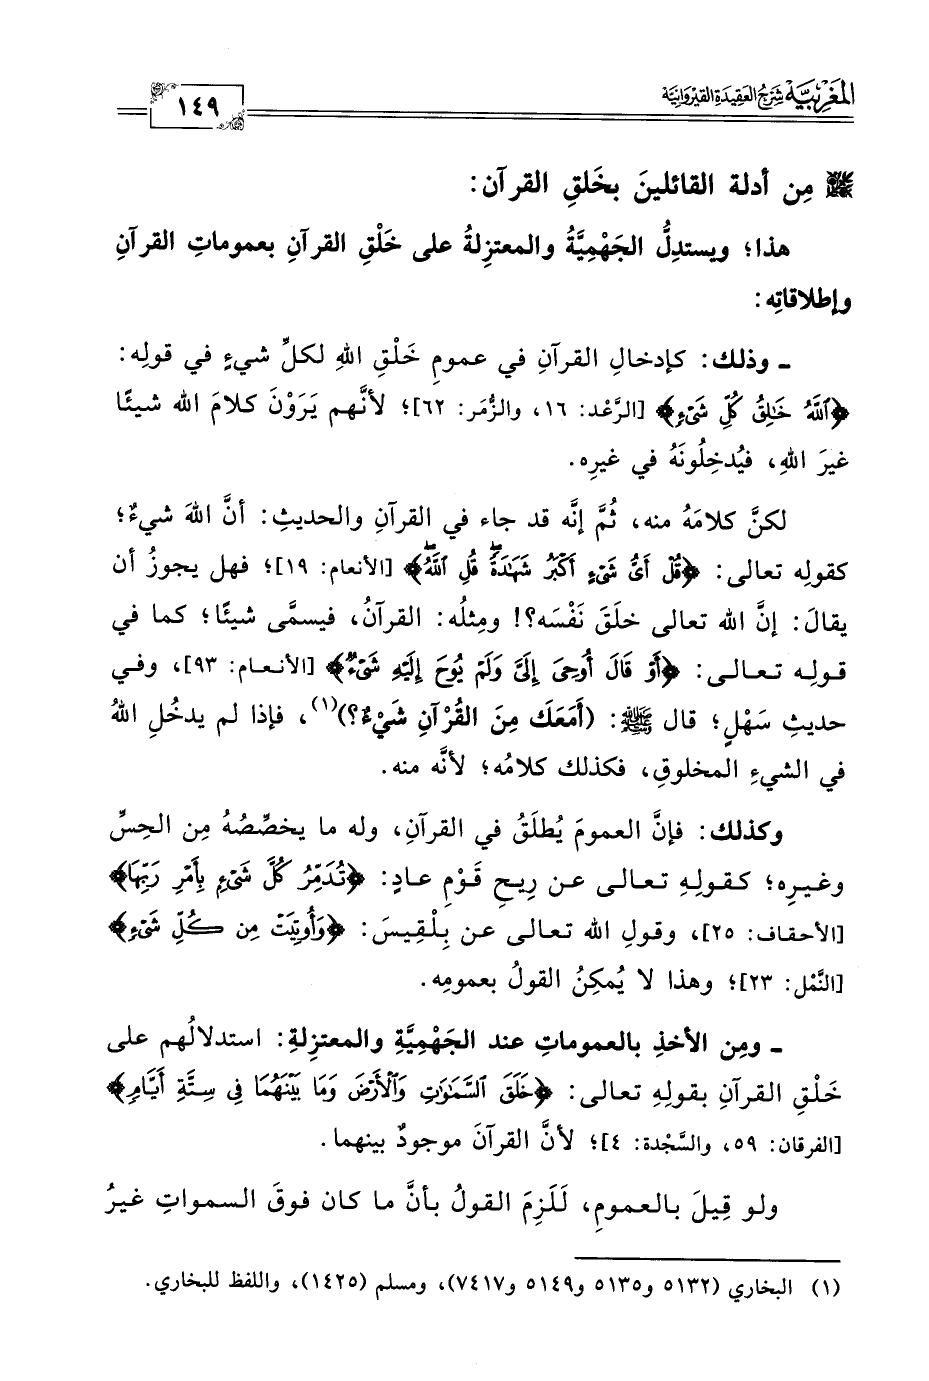 المغربية شرح العقيدة القيروانية
١٤٩
مِن أدلة القائلينَ بخَلقِ القرآن:
هذا؛ ويستدِلُّ الجَهْمِيَّةُ والمعتزِلةُ على خَلْقِ القرآنِ بعموماتِ القرآنِ
وإطلاقاتِه:
ـ وذلك: كإدخالِ القرآنِ في عمومِ خَلْقِ اللهِ لكلِّ شيءٍ في قولِه:
﴿ٱللَّهُ خَٰلِقُ كُلِّ شَىْءٍ﴾ [الرَّعْد: ١٦، والزُّمَر: ٦٢]؛ لأنَّهم يَرَوْنَ كلامَ الله شيئًا
غيرَ اللهِ، فيُدخِلُونَهُ في غيرِه.
لكنَّ كلامَهُ منه، ثُمَّ إنَّه قد جاء في القرآنِ والحديثِ: أنَّ اللهَ شيءٌ؛
كقولِه تعالى: ﴿قُلْ أَىُّ شَىْءٍ أَكْبَرُ شَهَٰدَةً ۖ قُلِ ٱللَّهُ ۖ﴾ [الأنعام: ١٩]؛ فهل يجوزُ أن
يقالَ: إنَّ الله تعالى خلَقَ نَفْسَه؟! ومِثلُه: القرآنُ، فيسمَّى شيئًا؛ كما في
قولِه تعالى: ﴿أَوْ قَالَ أُوحِىَ إِلَىَّ وَلَمْ يُوحَ إِلَيْهِ شَىْءٌ﴾ [الأنعام: ٩٣]، وفي
حديثِ سَهْلٍ؛ قال ﷺ: (أَمَعَكَ مِنَ القُرْآنِ شَيْءٌ؟)(١)، فإذا لم يدخُلِ اللهُ
في الشيءِ المخلوقِ، فكذلك كلامُه؛ لأنَّه منه.
وكذلك: فإنَّ العمومَ يُطلَقُ في القرآنِ، وله ما يخصِّصُهُ مِن الحِسِّ
وغيرِه؛ كقولِهِ تعالى عن رِيحِ قَوْمِ عادٍ: ﴿تُدَمِّرُ كُلَّ شَىْءٍۭ بِأَمْرِ رَبِّهَا﴾
[الأحقاف: ٢٥]، وقولِ الله تعالى عن بِلْقِيسَ: ﴿وَأُوتِيَتْ مِن كُلِّ شَىْءٍ﴾
[النَّمْل: ٢٣]؛ وهذا لا يُمكِنُ القولُ بعمومِه.
ـ ومِن الأخذِ بالعموماتِ عند الجَهْمِيَّةِ والمعتزِلةِ: استدلالُهم على
خَلْقِ القرآنِ بقولِهِ تعالى: ﴿خَلَقَ ٱلسَّمَٰوَٰتِ وَٱلْأَرْضَ وَمَا بَيْنَهُمَا فِى سِتَّةِ أَيَّامٍ﴾
[الفرقان: ٥٩، والسَّجْدة: ٤]؛ لأنَّ القرآنَ موجودٌ بينهما.
ولو قِيلَ بالعمومِ، لَلَزِمَ القولُ بأنَّ ما كان فوقَ السمواتِ غيرُ
(١) البخاري (٥١٣٢ و٥١٣٥ و٥١٤٩ و٧٤١٧)، ومسلم (١٤٢٥)، واللفظ للبخاري.